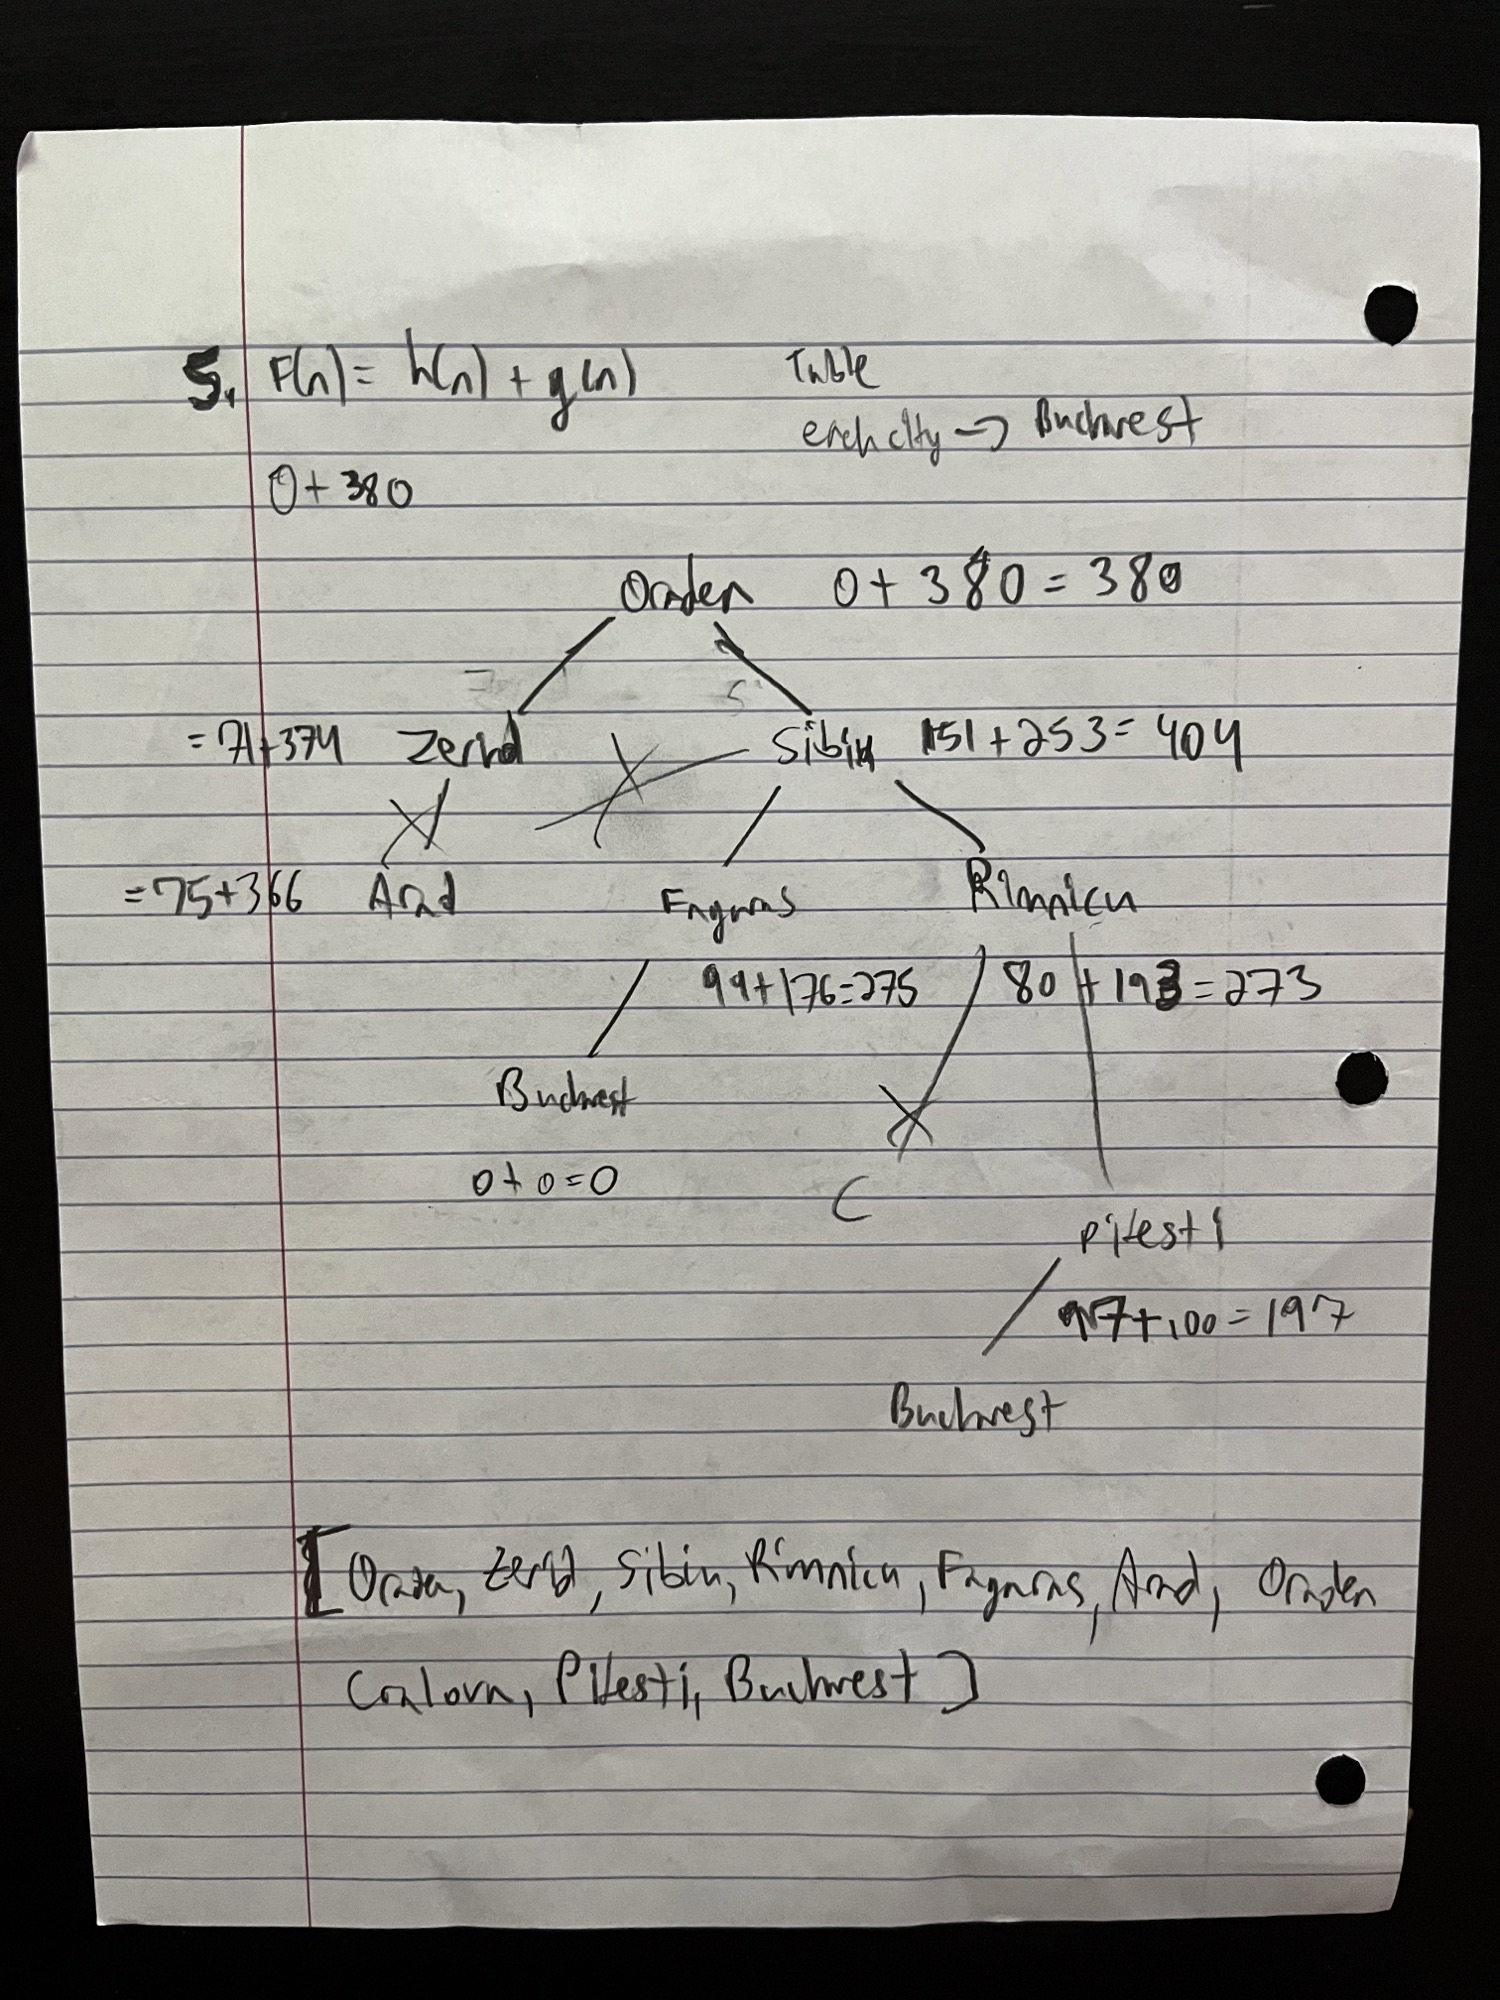 5. F(n) = h(n) + g(n) Table
each city → Bucharest
0 + 380
Oradea 0 + 380 = 380
= 71 + 374 Zerind Sibiu 151 + 253 = 404
= 75 + 366 Arad Fagaras Rimnicu
99 + 176 = 275 80 + 193 = 273
Bucharest
0 + 0 = 0 C
Pitesti
97 + 100 = 197
Bucharest
[Oradea, Zerind, Sibiu, Rimnicu, Fagaras, Arad, Oradea
Craiova, Pitesti, Bucharest]